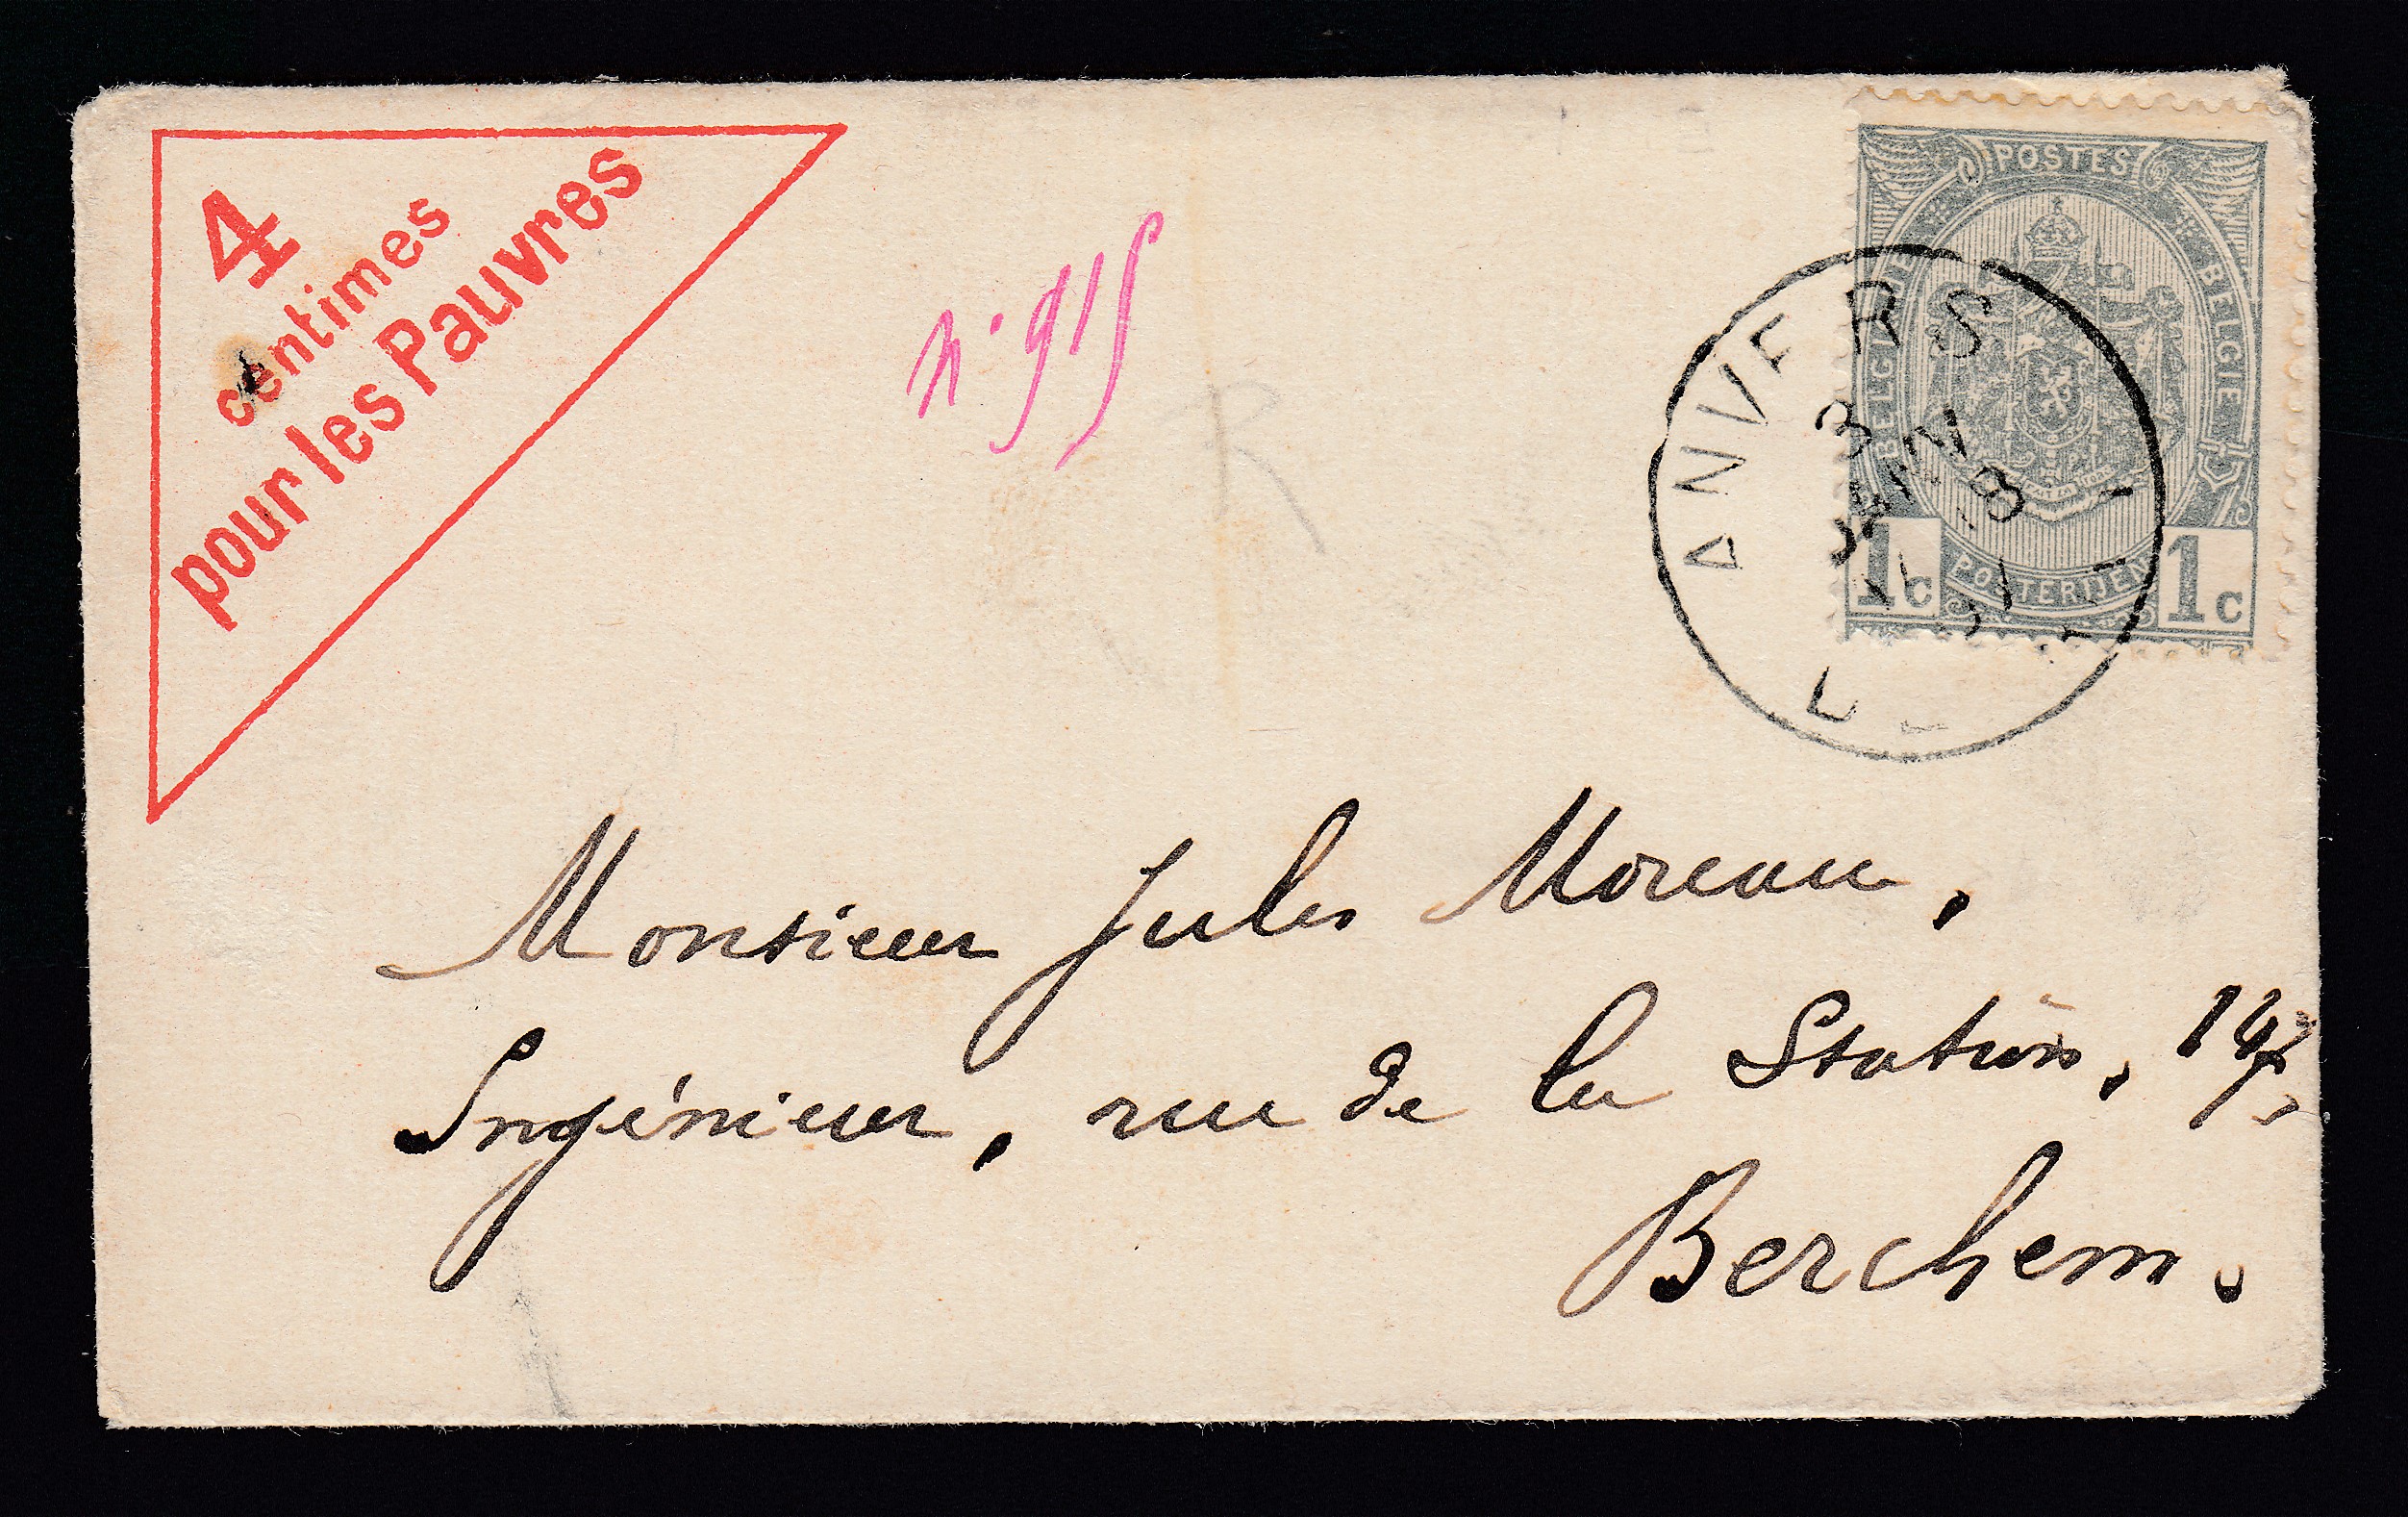 4
centimes
pour les Pauvres
N° 915
POSTES
BELGIQUE
BELGIË
POSTERIJEN
1c 1c
ANVERS
3
JANV
Monsieur Jules Moreau,
Ingénieur, rue de la Station,
Berchem.